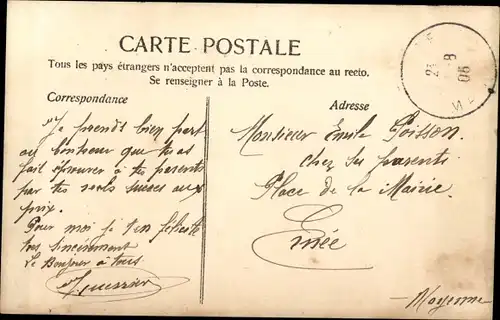 CARTE POSTALE
Tous les pays étrangers n'acceptent pas la correspondance au recto.
Se renseigner à la Poste.
Correspondance
Adresse
Je prends bien part
au bonheur que tu as
fait éprouver à tes parents
par tes succes aux
prix.
Pour moi je t'en félicite
tres sincerement
Le Bonjour à tous.
Guerrier
Monsieur Emile Poisson
chez ses parents
Place de la Mairie
Ernée
Mayenne
8
06